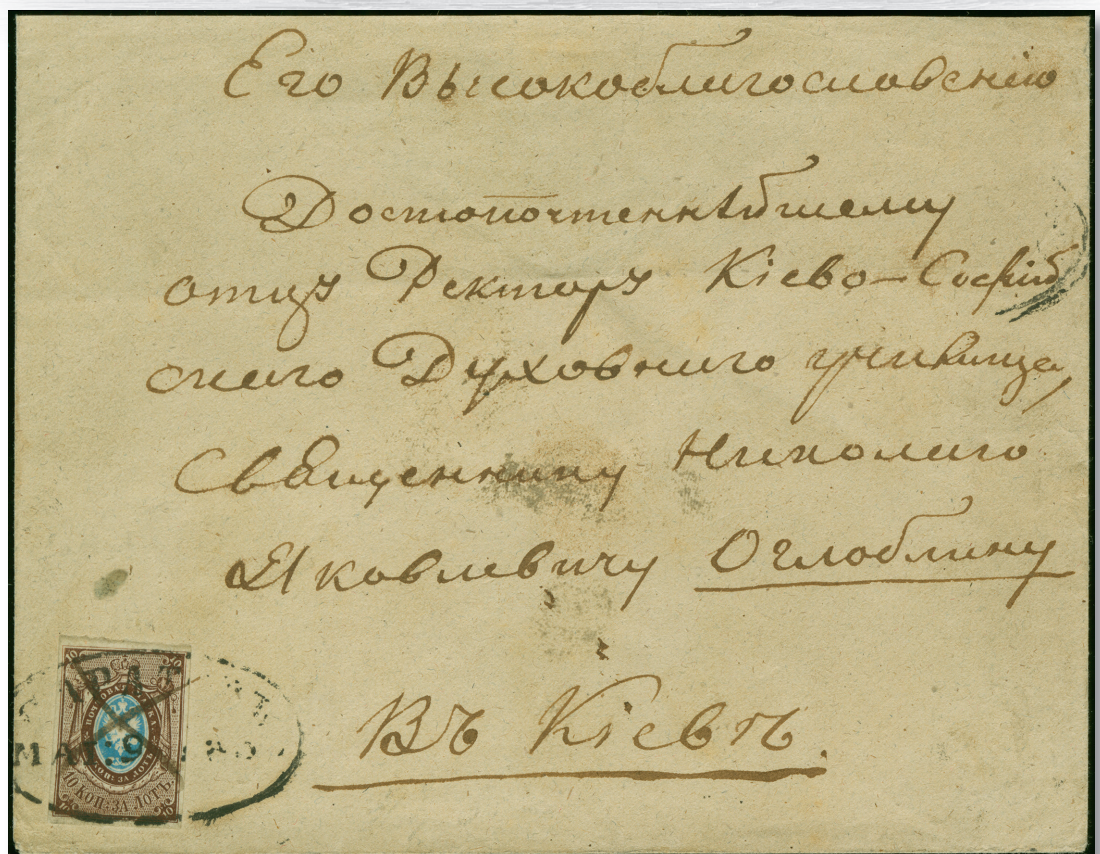 Его Высокоблагословенію
Достопочтеннѣйшему
отцу Ректору Кіево-Софій
скаго Духовнаго училища,
Священнику Николаю
Яковлевичу Оглоблину
Въ Кіевъ.
10 КОП: ЗА ЛОТЪ.